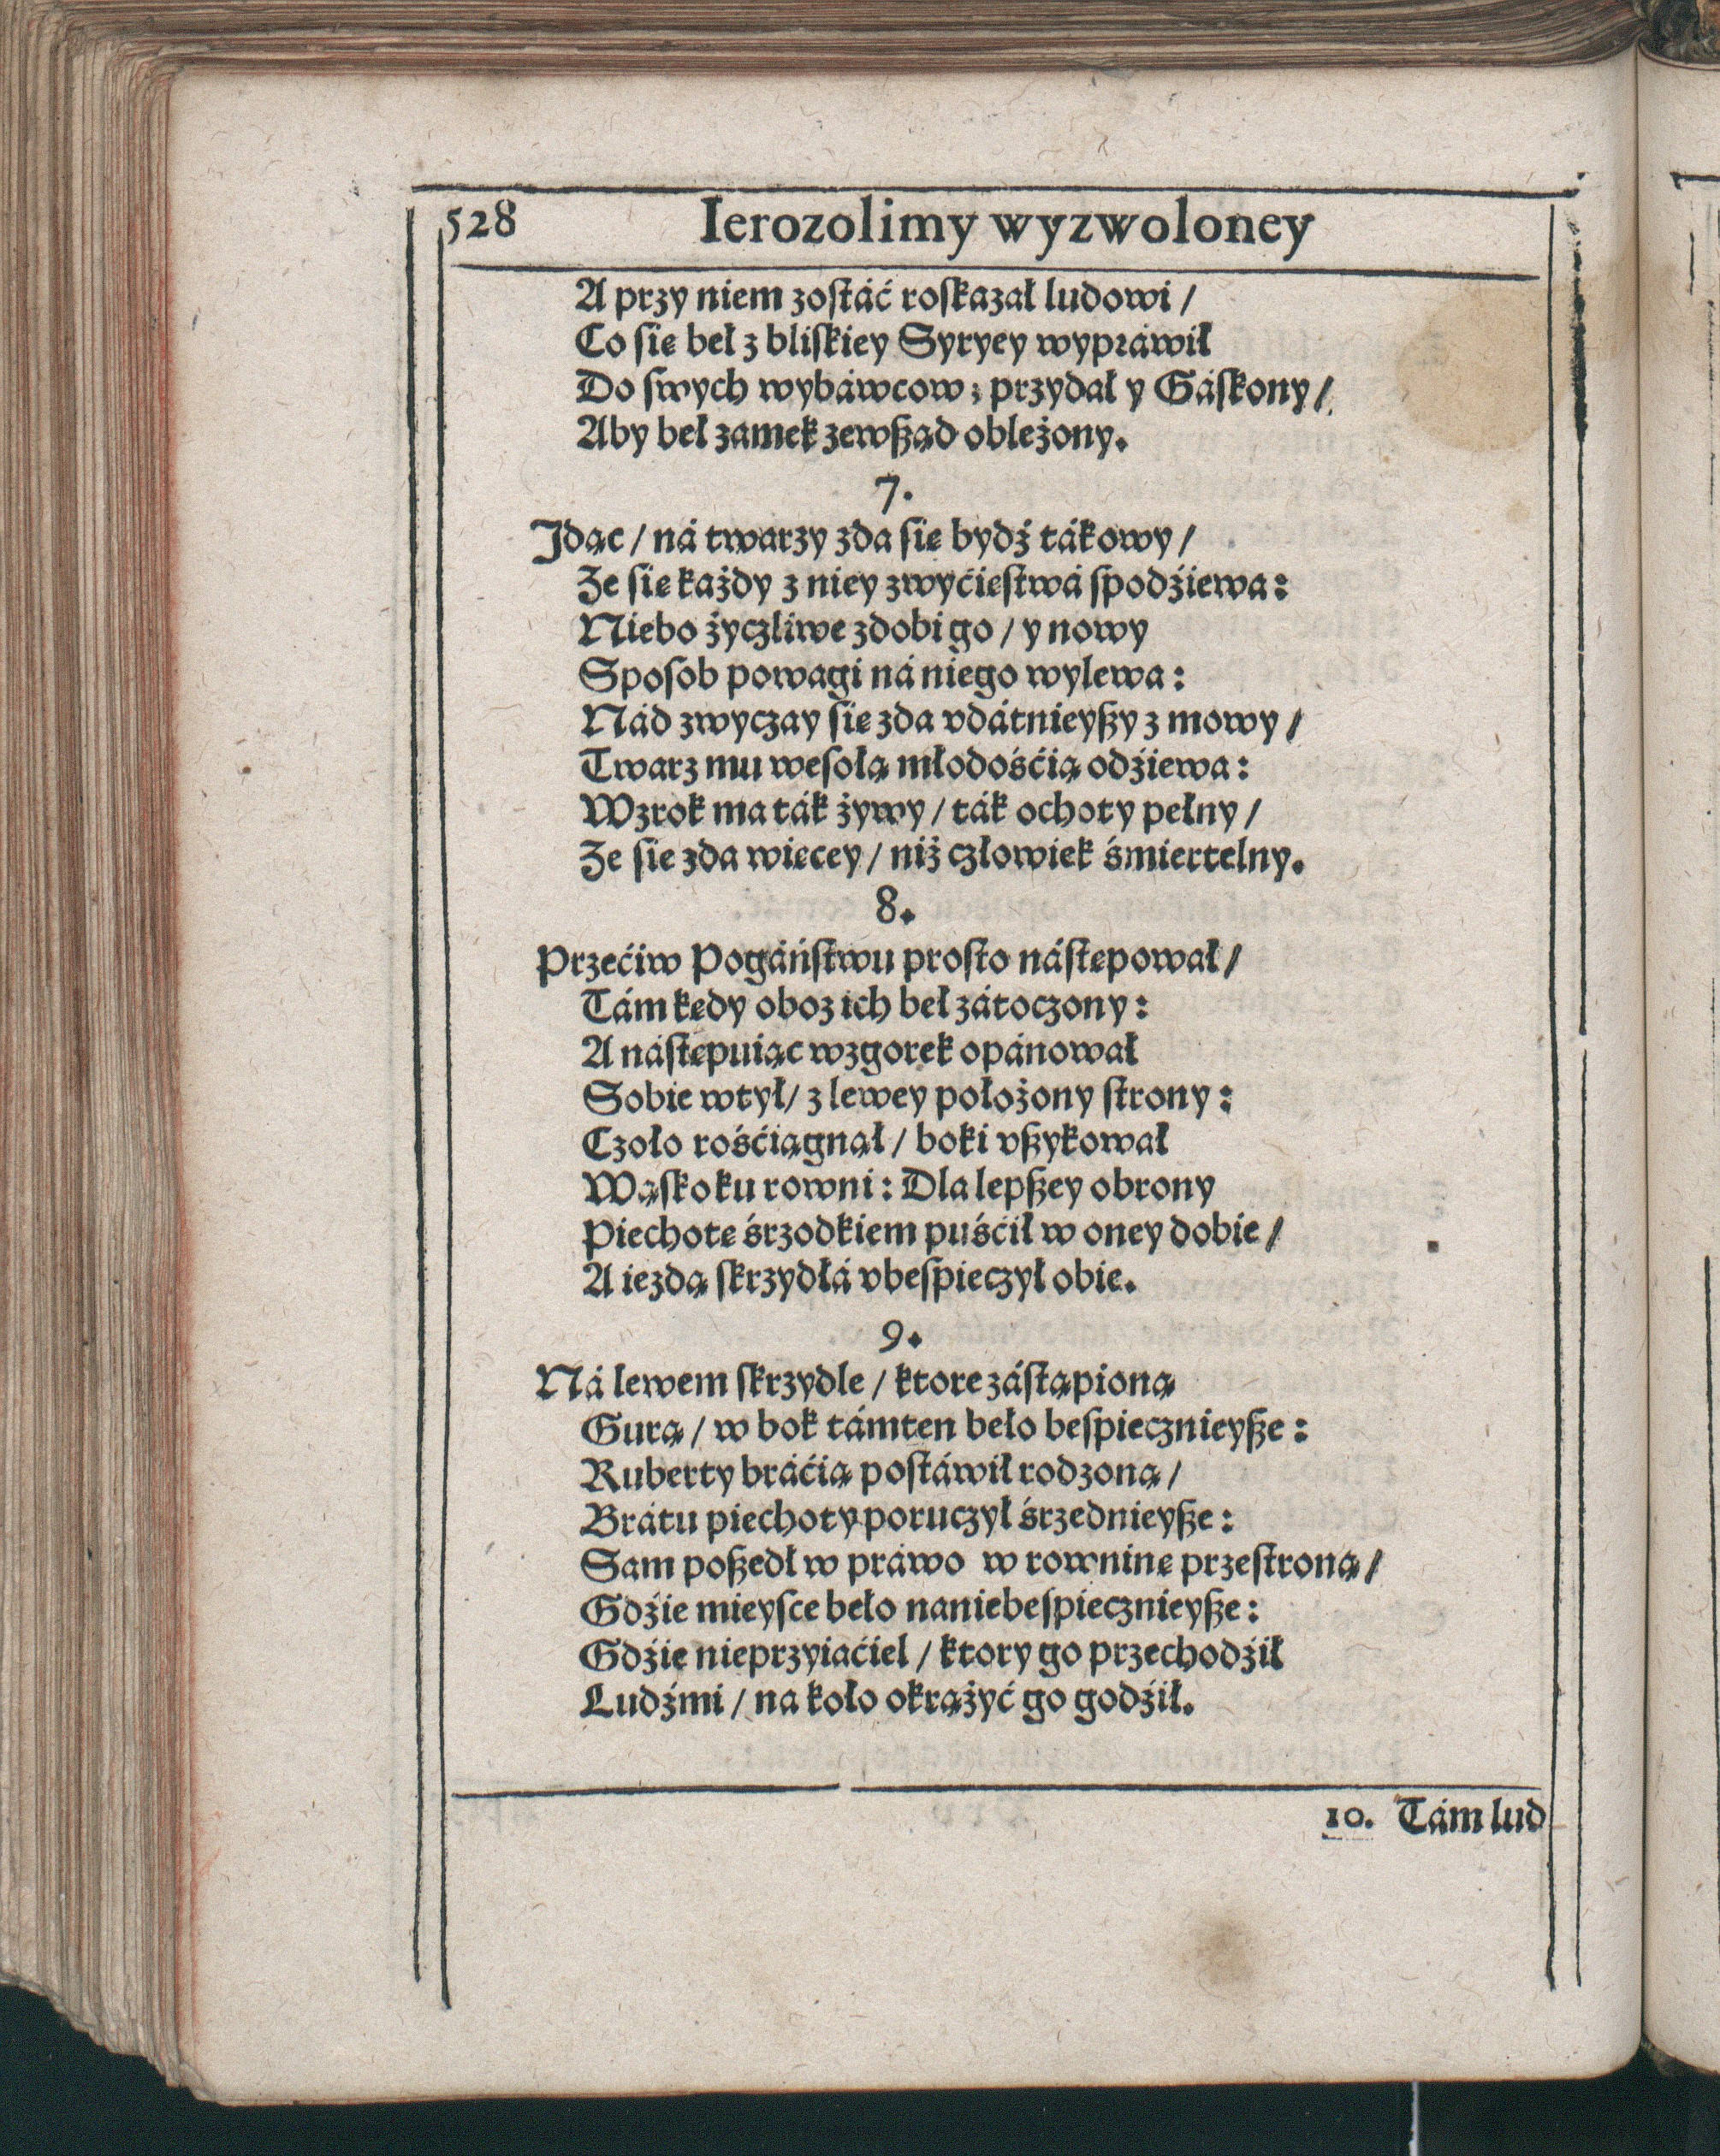 528 Ierozolimy wyzwoloney
A przy niem zostáć roskazał ludowi /
Co się beł z bliskiey Syryey wypráwił
Do swych wybáwcow; przydał y Gáskony /
Aby beł zamek zewszą̨d obleżony.
7.
Jdąc / ná twarzy zda się bydź tákowy /
Ze się każdy z niey zwyćięstwá spodźiewa:
Niebo życzliwe zdobi go / y nowy
Sposob powagi ná niego wylewa:
Nád zwyczay się zda vdátnieyszy z mowy /
Twarz mu wesołą młodośćią odźiewa:
Wzrok ma ták żywy / ták ochoty pełny /
Ze się zda więcey / niż człowiek śmiertelny.
8.
Przećiw Pogáństwu prosto nástępował /
Tám kędy oboz ich beł zátoczony:
A nástępuiąc wzgorek opánował
Sobie w tył / z lewey położony strony:
Czoło rośćiągnął / boki vszykował
Wąsko ku rowni: Dla lepszey obrony
Piechotę śrzodkiem puśćił w oney dobie /
A iezdą skrzydłá vbespieczył obie.
9.
Ná lewem skrzydle / ktore zástąpioną
Gurą / w bok támten beło bespiecznieysze:
Ruberty bráćią postáwił rodzoną /
Brátu piechoty poruczył śrzednieysze:
Sam poszedł w práwo w rowninę przestroną /
Gdźie mieysce beło naniebespiecznieysze:
Gdźie nieprzyiaćiel / ktory go przechodźił
Ludźmi / na koło okrążyć go godźił.
10. Tám lud